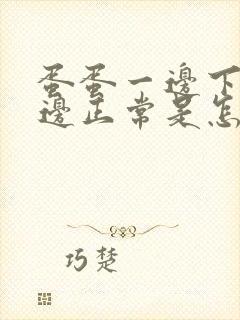 蛋蛋一邊下
邊正常是怎
巧楚